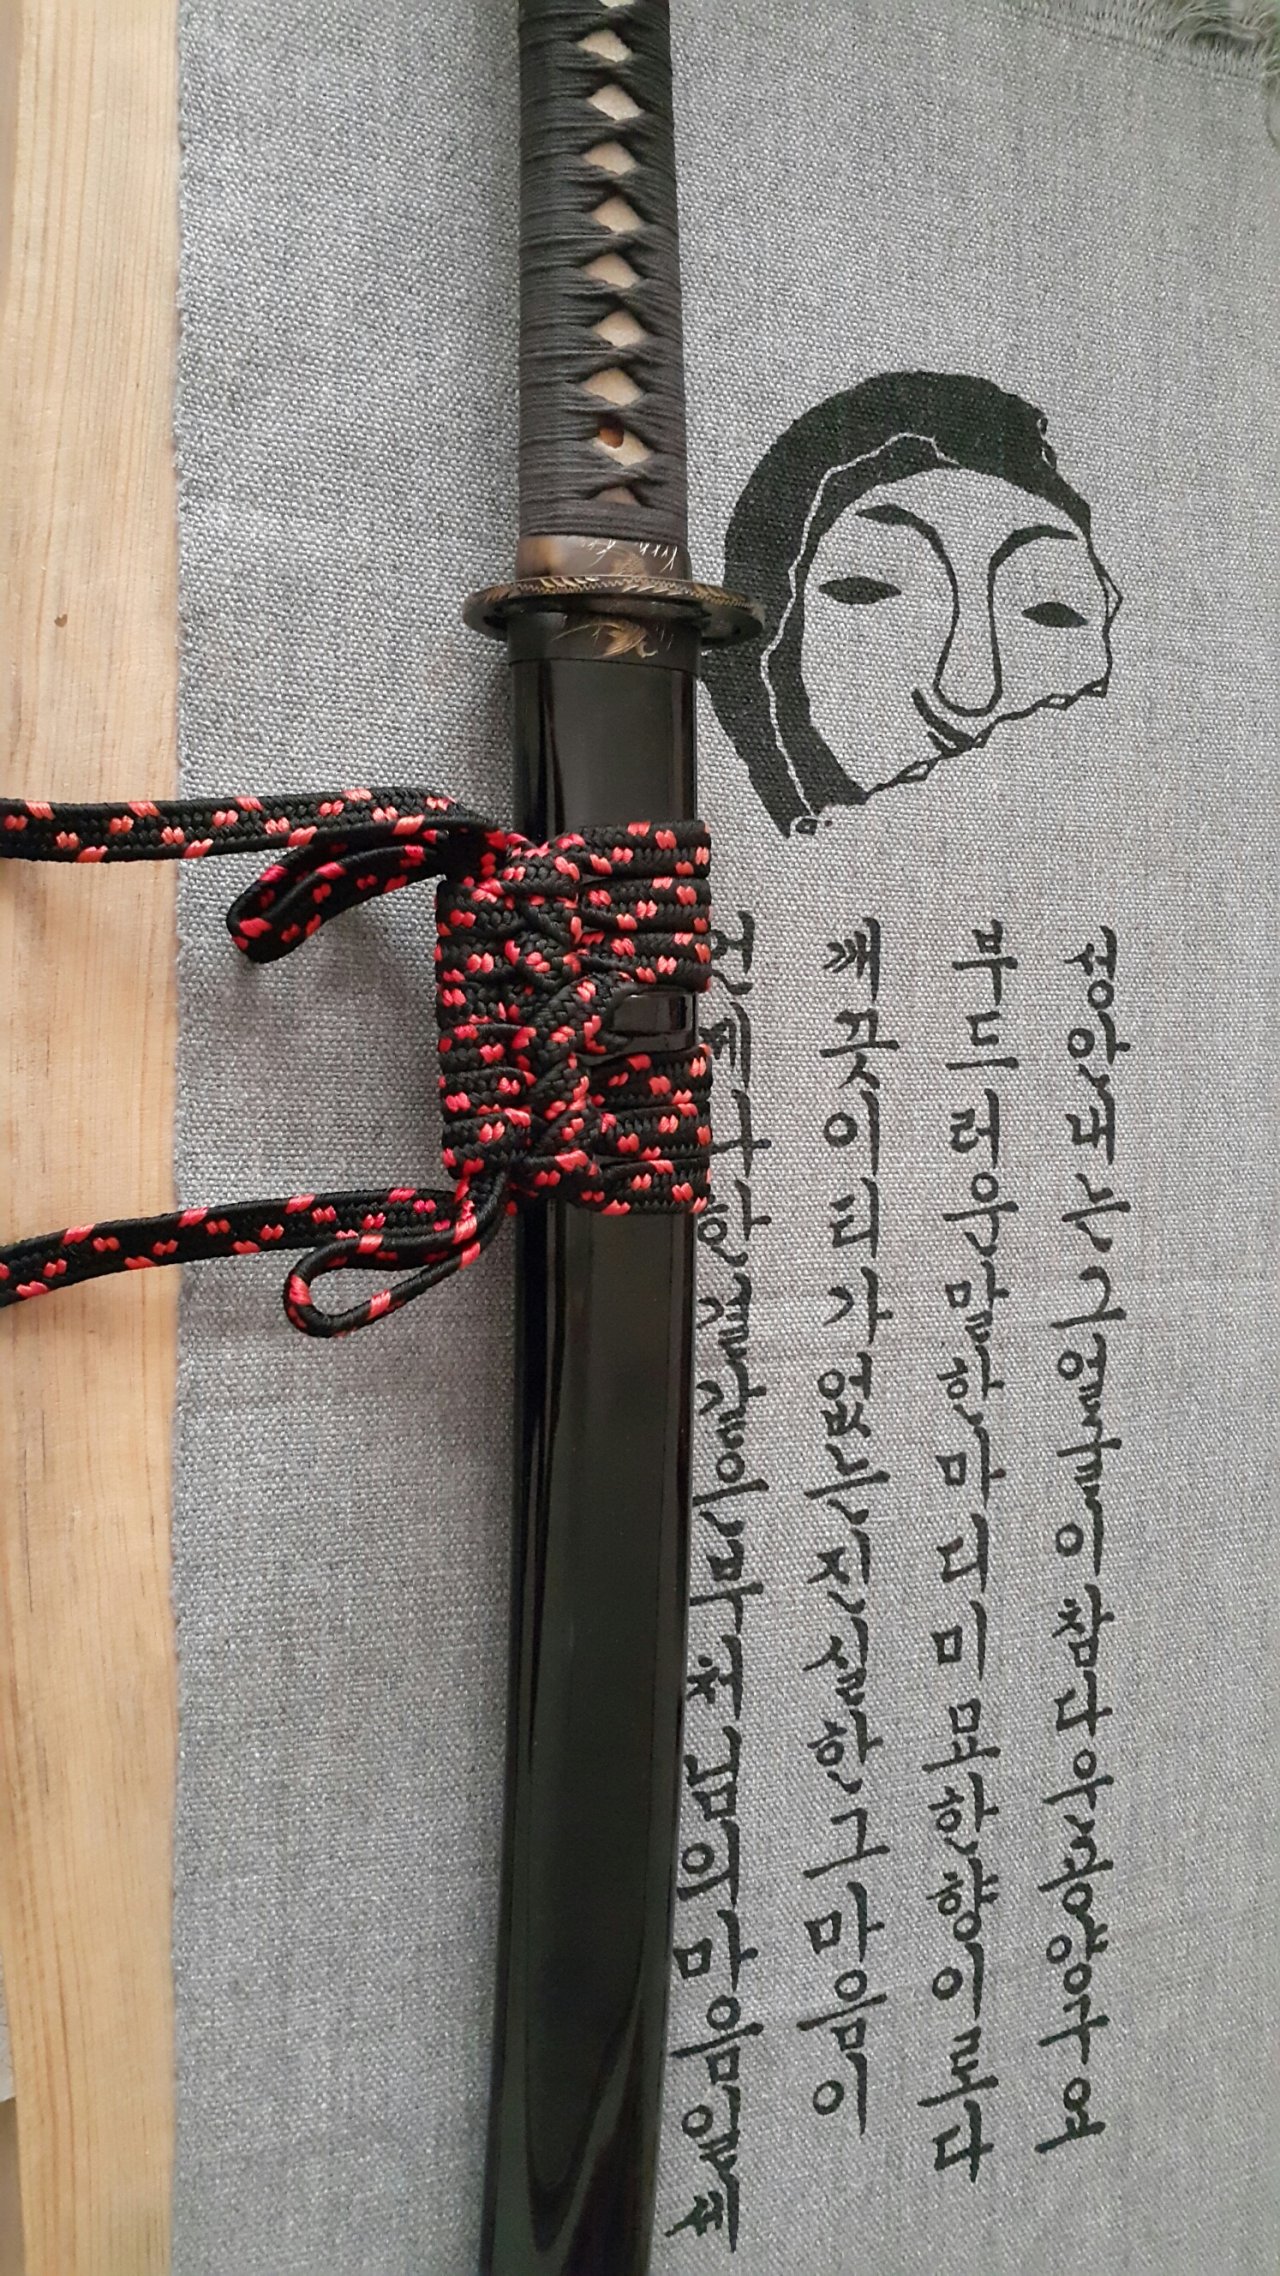 성안내는그얼굴이참다운공양구요
부드러운말한마디미묘한향이로다
깨끗이티가없는진실한그마음이
언제나한결같은부처님의마음일세